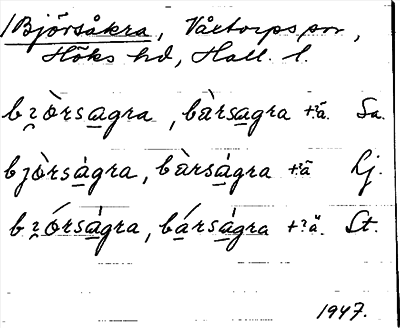 Björsåkra, Våxtorps sn,
Höks hd, Hall. l.
bzòrsagra, bàrsagra +ʾä Sa.
bjòrságra, bàrságra +ʾä Lj.
bzórságra, bárságra +ʾä. St.
1947.